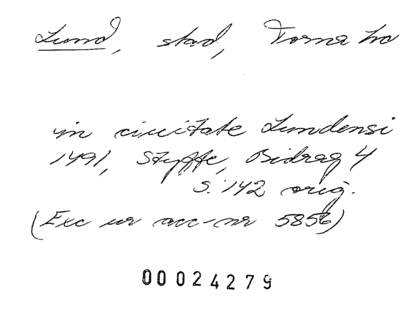 Lund, stad, Torna hd
in civitate Lundensi
1491, Styffe, Bidrag 4
s. 142 orig.
(Exc ur acc-nr 5856)
00024279